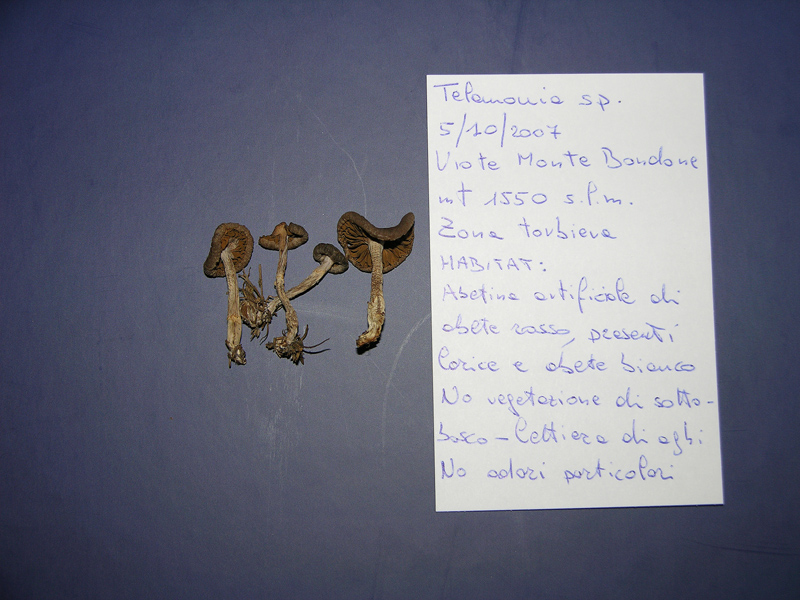 Telamonia sp.
5/10/2007
Viote Monte Bondone
mt 1550 s.l.m.
Zona torbiera
HABITAT:
Abetina artificiale di
abete rosso, presenti
larice e abete bianco
No vegetazione di sotto-
bosco - Lettiera di aghi
No odori particolari